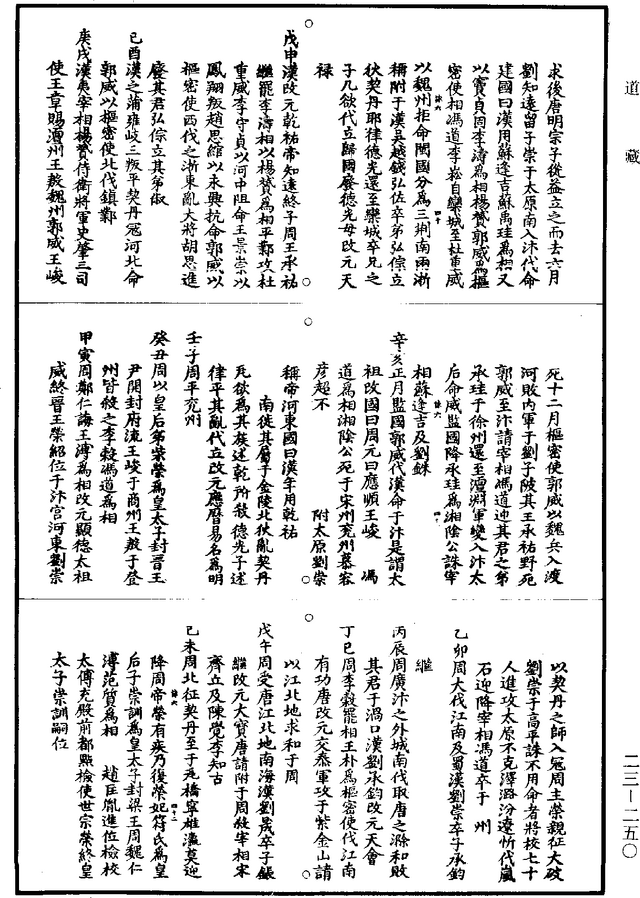 道藏
求後唐明宗子從益立之而去六月
劉知遠留子崇于太原南入汴代命
建國曰漢用蘇逢吉蘇禹珪為相又
以竇貞固李濤為相楊贇郭威為樞
密使相馮道李崧自欒城至杜重威
以魏州拒命閩國分為三荆南兩浙
稱附于漢吳越錢弘佐卒弟弘倧立
伙契丹耶律德光還至欒城卒兄之
子兀欲代立歸國廢德光母改元天
祿
戊申漢改元乾祐帝知遠終子周王承祐
繼罷李濤相以楊贇為相平鄴攻杜
重威李守貞以河中阻命王景崇以
鳳翔叛趙思綰以永興抗命郭威以
樞密使西伐之浙東亂大將胡思進
廢其君弘倧立其弟俶
己酉漢之蒲雍岐三叛平契丹冦河北命
郭威以樞密使北伐鎮鄴
庚戌漢夷宰相楊贇侍衛將軍史肇三司
使王章賜澶州王殷魏州郭威王峻
死十二月樞密使郭威以魏兵入渡
河敗内軍于劉子陂其主承祐野死
郭威至汴請宰相馮道迎其君之弟
承珪于徐州還至澶淵軍變入汴太
后命威監國降承珪為湘陰公誅宰
相蘇逢吉及劉銖
辛亥正月監國郭威代漢命于汴是謂太
祖改國曰周元曰應順王峻 馮
道為相湘陰公死于宋州兖州慕容
彦超不 附太原劉崇
稱帝河東國曰漢年用乾祐
南徙其屬于金陵北狄亂契丹
兀欲為其族述軋所殺德光子述
律平其亂代立改元應曆易名為明
壬子周平兖州
癸丑周以皇后弟柴榮為皇太子封晉王
尹開封府流王峻于商州王殷于登
州皆殺之李穀馮道為相
甲寅周鄭仁誨王溥為相改元顯德太祖
威終晉王榮紹位于汴宫河東劉崇
以契丹之師入冦周主榮親征大破
劉崇于高平誅不用命者將校七十
人進攻太原不克澤潞汾遼忻代嵐
石迎降宰相馮道卒于 州
乙卯周大伐江南及蜀漢劉崇卒子承鈞
繼
丙辰周廣汴之外城南伐取唐之滁和敗
其君于渦口漢劉承鈞改元天會
丁巳周李穀罷相王朴為樞密使伐江南
有功唐改元交泰軍攻于紫金山請
以江北地求和于周
戊午周受唐江北地南海漢劉晟卒子鋹
繼改元大寶唐請附于周殺宰相宋
齊立及陳覺李知古
己未周北征契丹至于瓦橋寧雄瀛莫迎
降周帝榮有疾乃復榮妃符氏為皇
后子崇訓為皇太子封梁王周魏仁
溥范質為相 趙匡胤進位檢校
太傅充殿前都㸃檢使世宗榮終皇
太子崇訓嗣位
二三—二五〇